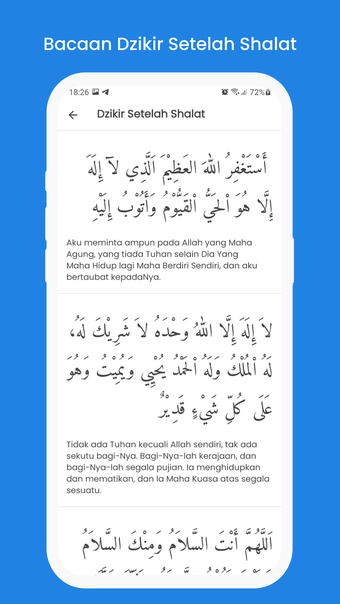 Bacaan Dzikir Setelah Shalat
18:26 72%
Dzikir Setelah Shalat
أَسْتَغْفِرُ اللهَ العَظِيْمَ اَلَّذِي لآ إِلَهَ
إِلَّا هُوَ اْلحَيُّ الْقَيُّوْمُ وَأَتُوْبُ إِلَيْهِ
Aku meminta ampun pada Allah yang Maha
Agung, yang tiada Tuhan selain Dia Yang
Maha Hidup lagi Maha Berdiri Sendiri, dan aku
bertaubat kepadaNya.
لاَ إِلَهَ إِلَّا اللهُ وَحْدَهُ لاَ شَرِيْكَ لَهُ،
لَهُ الْمُلْكُ وَلَهُ اْلحَمْدُ يُحْيِي وَيُمِيْتُ وَهُوَ
عَلَى كُلِّ شَيْءٍ قَدِيْرٌ
Tidak ada Tuhan kecuali Allah sendiri, tak ada
sekutu bagi-Nya. Bagi-Nya-lah kerajaan, dan
bagi-Nya-lah segala pujian. Ia menghidupkan
dan mematikan, dan Ia Maha Kuasa atas segala
sesuatu.
اَللَّهُمَّ أَنْتَ السَّلاَمُ وَمِنْكَ السَّلاَمُ